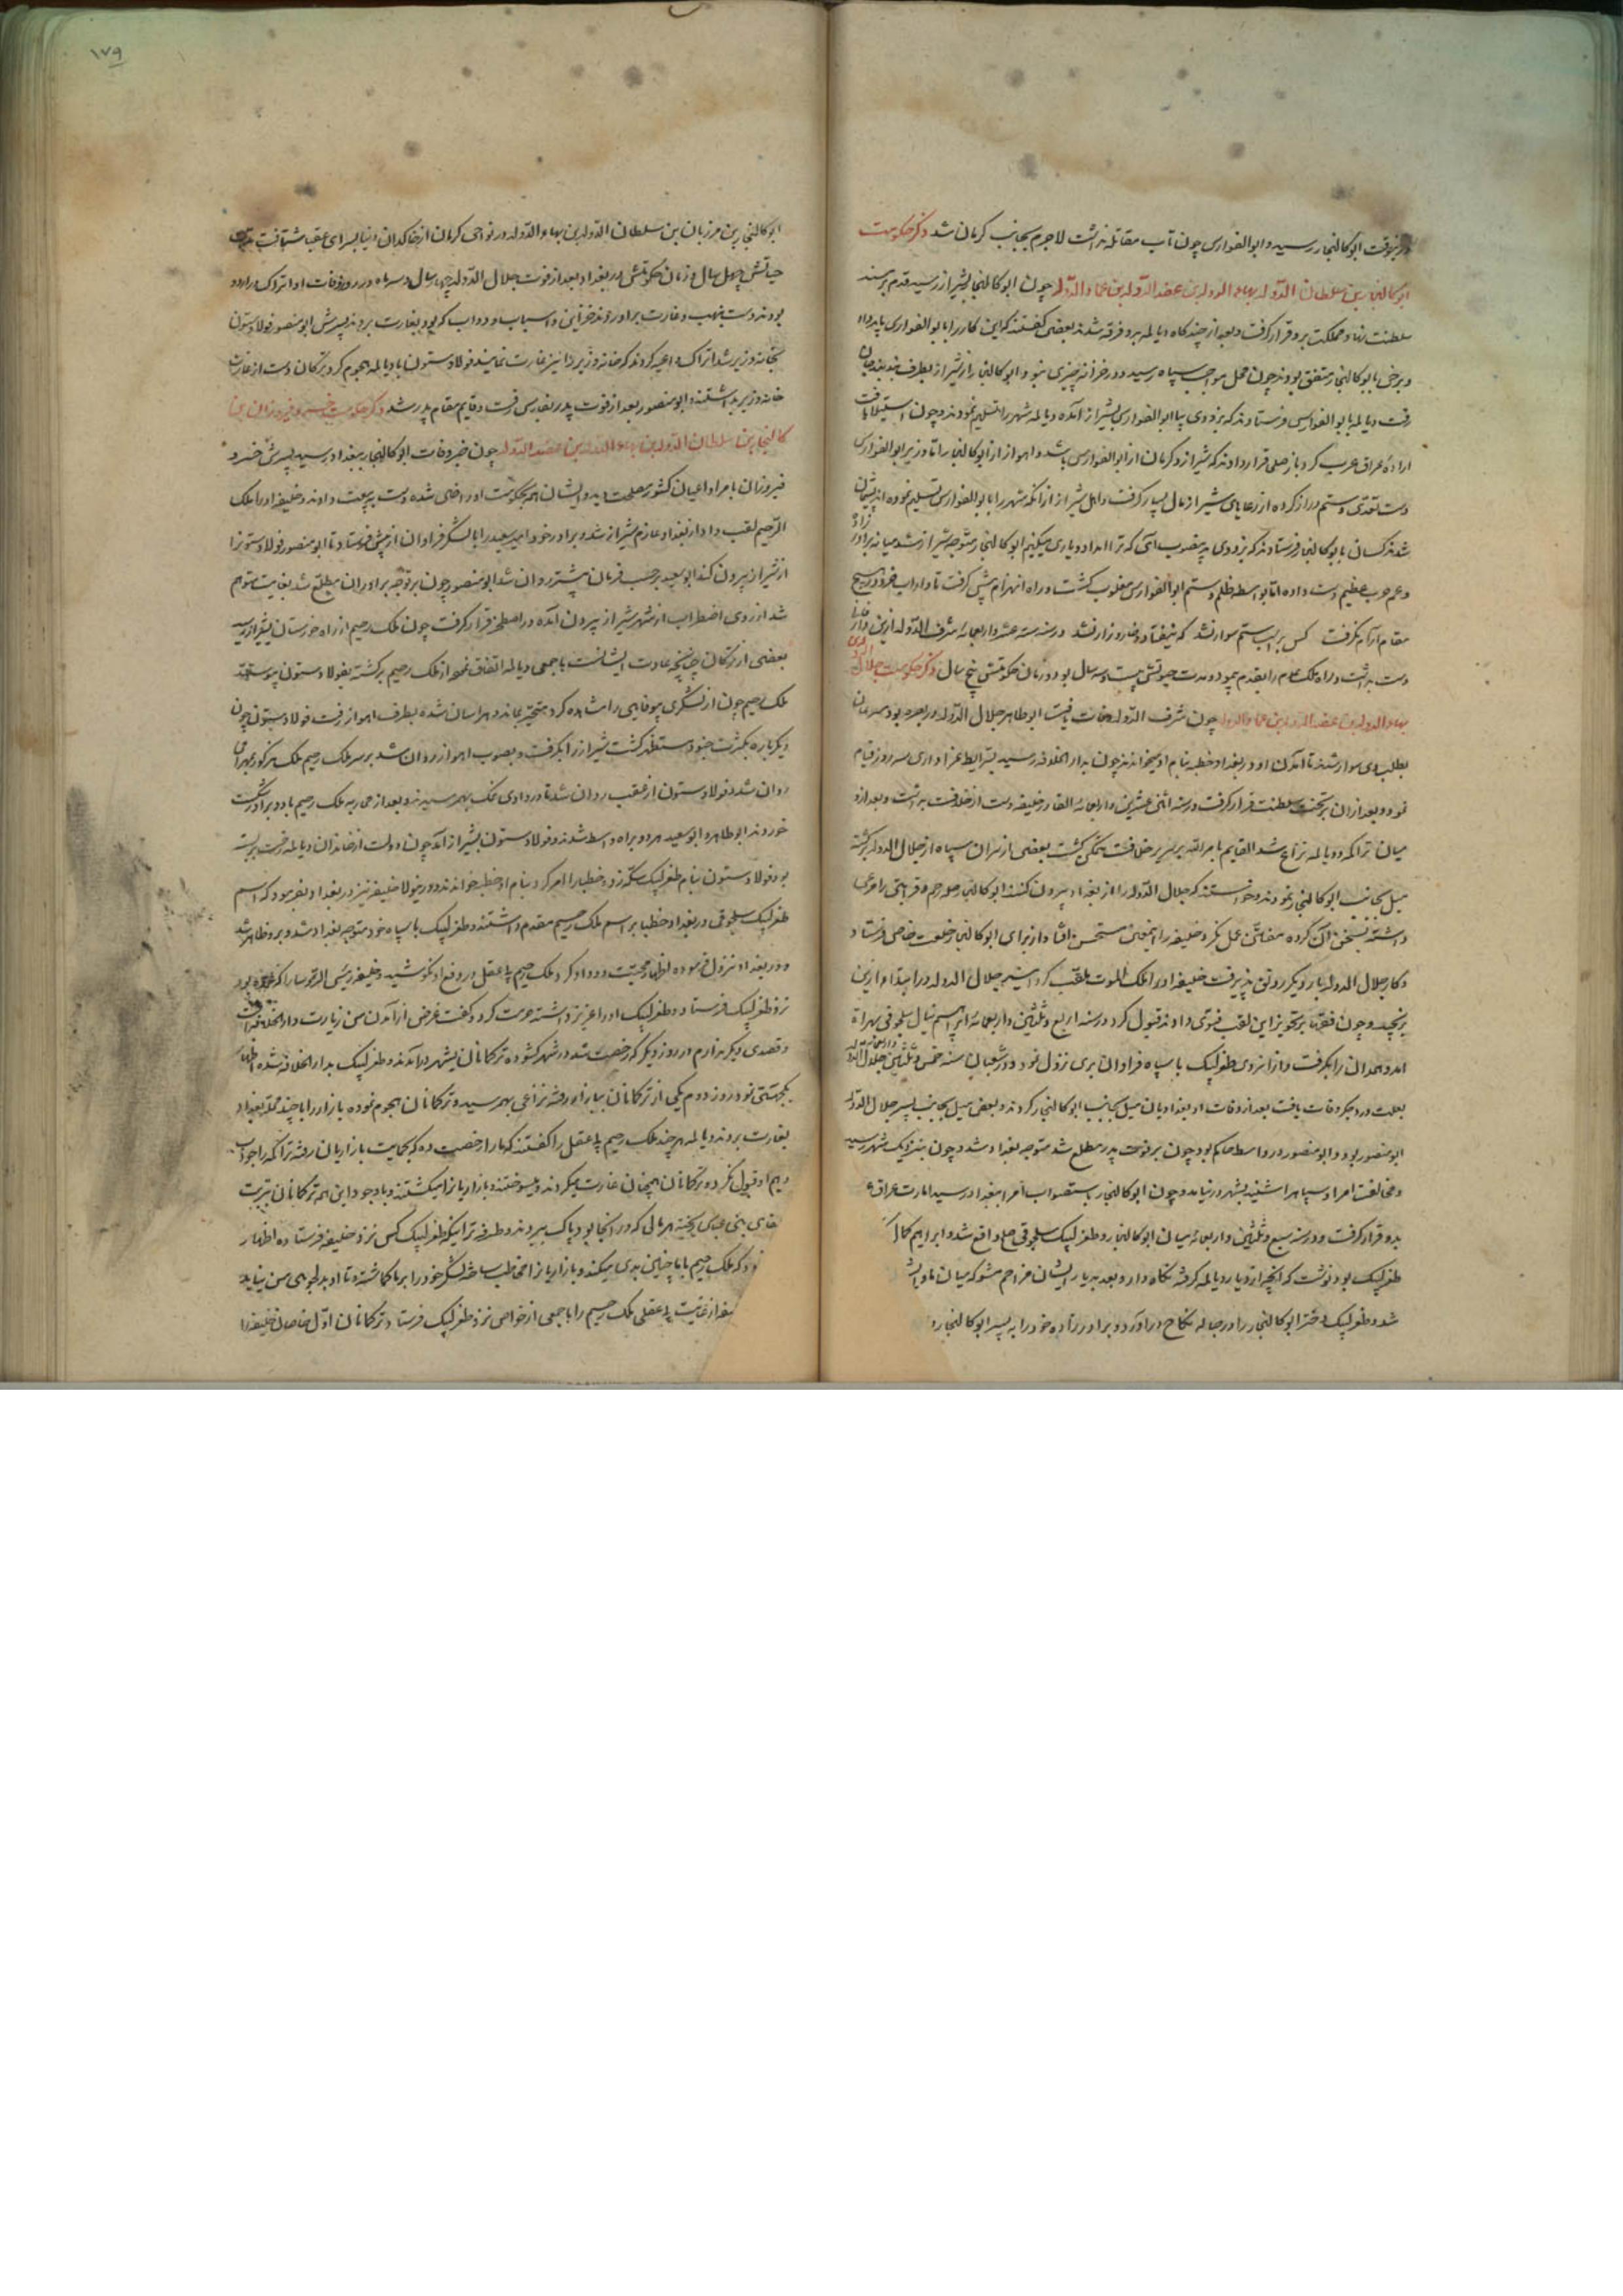 درینوقت ابوکالنجار رسید و ابوالفوارس چون تاب مقابله نداشت لاجرم بجانب کرمان شد ذکر حکومت
ابوکالنجار بن سلطان الدوله بن بهاء الدوله بن عضد الدوله بن عماد الدوله چون ابوکالنجار بشیراز رسید قدم بر مسند
سلطنت نهاد و مملکت برو قرار گرفت و بعد از چند گاه دیالمه بدو فرقه شدند بعضی گفتند که این کار را با ابوالفوارس باید داد
و برخی با ابوکالنجار متفق بودند چون محل مواجب سپاه رسید و در خزانه چیزی نبود ابوکالنجار از شیراز بطرف
رفت دیالمه با ابوالفوارس فرستادند که بزودی بیا ابوالفوارس بشیراز آمده دیالمه شهر را تسلیم نمودند و چون استیلا یافت
اراده عراق عرب کرد باز صلح قرار دادند که شیراز و کرمان از ابوالفوارس باشد و اهواز از ابوکالنجار اما وزیر ابوالفوارس
دست تعدی و ستم دراز کرده از رعایای شیراز مال بسیار گرفت و اهل شیراز از آنکه شهر را با ابوالفوارس تسلیم نموده اند پشیمان
شدند کسان با ابوکالنجار فرستادند که بزودی بدینصوب آئی که ترا امداد و یاری میکنیم ابوکالنجار متوجه شیراز شد میانه برادرزاده
و عم حرب عظیم دست داده اما بواسطه ظلم و ستم ابوالفوارس مغلوب گشت و راه انهزام پیش گرفت تا داراب خرد در هیچ
مقام آرام نگرفت کس بر اسب ستم سوار نشد که نیفتاد و خار و زار نشد در سنه ستة عشر و اربعمائه مشرف الدوله ازین دار فانی
دست برداشت و راه ملک عدم را بقدم پیمود و مدت حیوتش بیست و سه سال بود و زمان حکومتش پنج سال ذکر حکومت جلال الدوله بن
بهاء الدوله بن عضد الدوله بن عماد الدوله چون مشرف الدوله وفات یافت ابوطاهر جلال الدوله در بصره بود
بطلب وی سوار شدند تا آمدن او در بغداد خطبه بنام او میخواندند چون بدار الخلافه رسید بشرایط عزاداری سه روز قیام
نمود و بعد ازان بر تخت سلطنت قرار گرفت و در سنه اثنی عشرین و اربعمائه القادر خلیفه دست از خلافت برداشت و بعد ازو
میان تراکمه و دیالمه نزاع شد القایم بامرالله بر سریر خلافت متمکن گشت بعضی از سران سپاه از جلال الدوله برگشته
میل بجانب ابوکالنجار نمودند و خواستند که جلال الدوله را از بغداد بیرون کنند ابوکالنجار صله رحم و قرابتی را مرعی
داشته بسخن آن گروه مفتن عمل نکرد خلیفه را این معنی مستحسن افتاد از برای ابوکالنجار خلعت خاص فرستاد
و کار جلال الدوله بار دیگر رونق پذیرفت خلیفه او را ملک الملوک ملقب گردانید جلال الدوله در ابتدا ازین
برنجید و چون فقها بر تجویز این لقب فتوی دادند قبول کرد در سنه اربع و ثلثین و اربعمائه ابراهیم نیال سلجوقی بهراة
آمد و همدان را بگرفت و از آنروی طغرلبیک با سپاه فراوان بری نزول نمود و در شعبان سنه خمس و ثلثین و اربعمائه جلال الدوله
بعلت درد جگر وفات یافت بعد از وفات او بغدادیان میل بجانب ابوکالنجار کردند و بعضی میل بجانب پسر جلال الدوله
ابومنصور بود و ابومنصور در واسط حاکم بود چون بر فوت پدر مطلع شد متوجه بغداد شد و چون بنزدیک شهر رسید
و مخالفت امرا و سپاه را شنید بشهر در نیامد و چون ابوکالنجار باستصواب امرا ببغداد رسید امارت عراق
بدو قرار گرفت و در سنه سبع و ثلثین و اربعمائه میان ابوکالنجار و طغرلبیک سلجوقی صلح واقع شد و ابراهیم
طغرلبیک بود نوشت که آنچه از دیار دیالمه گرفته نگاه دارد و بعد به دیار ایشان مزاحم مشو که میان ما و ایشا
شد و طغرلبیک دختر ابوکالنجار را در حباله نکاح در آورد و برادرزاده خود را به پسر ابوکالنجار
۱۷۹
ابوکالنجار بن مرزبان بن سلطان الدوله بن بهاء الدوله در نواحی کرمان از خاکدان دنیا بسرای عقبی شتافت مدت
حیاتش چهل سال و زمان حکومتش در بغداد بعد از فوت جلال الدوله چهار سال و سه ماه در روز وفات او اتراک در اردو
بودند دست بنهب و غارت برآوردند خزاین و اسباب و دواب که بود بغارت بردند پسرش ابومنصور فولادستون
بخانه وزیر شد اتراک داعیه کردند که خانه وزیر را نیز غارت نمایند فولادستون با دیالمه هجوم کرد ترکان دست از غارت
خانه وزیر بداشتند و ابومنصور بعد از فوت پدر بفارس رفت و قایم مقام پدر شد ذکر حکومت خسرو فیروز بن
کالنجار بن سلطان الدوله بن بهاء الدوله بن عضد الدوله چون خبر وفات ابوکالنجار ببغداد رسید پسرش خسرو
فیروز با امرا و اعیان کشور مصلحت دید و ایشان هم بحکومت او راضی شده دست به بیعت دادند و خلیفه او را ملک
الرحیم لقب داد از بغداد عازم شیراز شد و برادر خود امیر ابوسعید را با لشکر فراوان از پیش فرستاد تا ابومنصور فولادستون را
از شیراز بیرون کند ابوسعید بر حسب فرمان پیشتر روان شد ابومنصور چون بر توجه برادران مطلع شد بغایت متوهم
شد از روی اضطراب از شهر شیراز بیرون آمده در اصطخر قرار گرفت چون ملک رحیم از راه خوزستان بشیراز رسید
بعضی از ترکان چنانچه عادت ایشانست با جمعی دیالمه اتفاق نموده از ملک رحیم برگشته بفولادستون پیوستند
ملک رحیم چون از لشکری بیوفایی را مشاهده کرد متحیر بماند و هراسان شده بطرف اهواز رفت فولادستون چون
دیگر باره بکثرت جنود مستظهر گشت شیراز را بگرفت و بصوب اهواز روان شد بر سر ملک رحیم
روان شد فولادستون از عقب روان شد تا در وادی نمک بهم رسیدند و بعد از محاربه ملک رحیم با دو برادر شکست
خوردند ابوطاهر و ابوسعید هر دو براه واسط شدند و فولادستون بشیراز آمد چون دولت از خاندان دیالمه رخت بربسته
بود فولادستون بنام طغرلبیک سکه زد و خطبا را امر کرد بنام او خطبه خواندند و درینولا خلیفه نیز در بغداد بفرمود که اسم
طغرلبیک سلجوقی در بغداد خطبا بر اسم ملک رحیم مقدم داشتند و طغرلبیک با سپاه خود متوجه بغداد شد و برو ظاهر شد
و در بغداد نزول فرموده اظهار محبت و وداد کرد و ملک رحیم بی عقل در دفع او نکوشید و خلیفه رئیس الرؤسا را که
نزد طغرلبیک فرستاد و طغرلبیک او را عزیز داشته حرمت کرد و گفت غرض از آمدن من زیارت دار الخلافه است
و قصدی دیگر ندارم در روز دیگر که رخصت شد در شهر گشوده ترکمانان بشهر درآمدند و طغرلبیک بدار الخلافه شده اظهار
یکجهتی نمود روز دوم یکی از ترکمانان ببازار رفته نزاعی بهم رسید و ترکمانان هجوم نموده بازار را با چند محله بغداد
بغارت بردند دیالمه هر چند ملک رحیم بی عقل را گفتند که ما را رخصت ده که بحمایت بازاریان رفته تراکمه را جواب
دهیم او قبول نکرد و ترکمانان همچنان غارت میکردند و میسوختند و بازاریان را میکشتند و با وجود این همه ترکمانان
بنی عباس ریخته هر مالی که در آنجا بود پاک ببردند و طرفه تر اینکه طغرلبیک کس نزد خلیفه فرستاده اظهار
کرد که ملک رحیم با ما چنین بدی میکند و بازاریان را مخاطب ساخته لشکر خود را بر ما گماشته و تا او بدلجویی من نیاید
از غایت بی عقلی ملک رحیم را با جمعی از خواص نزد طغرلبیک فرستاد و ترکمانان اول خاصان خلیفه را